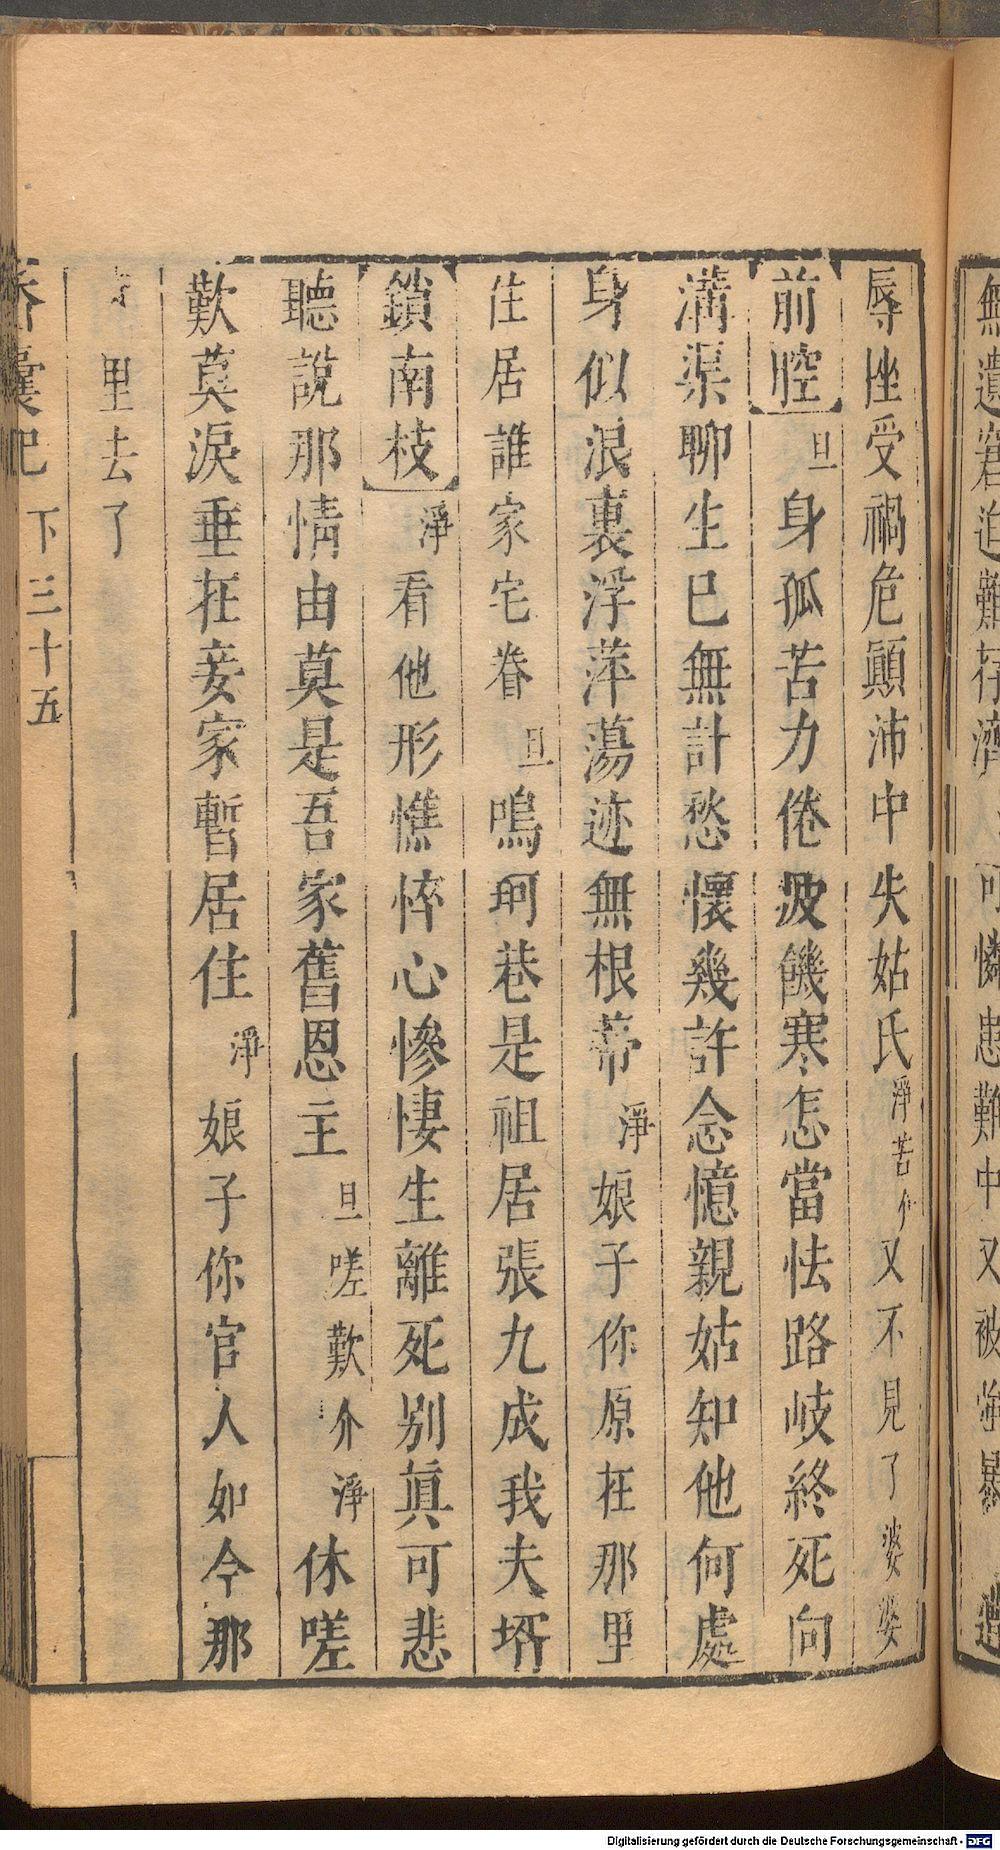 無遺窘迫難存濟 可憐患難中又被強暴 遭
辱挫受禍危顛沛中失姑氏淨苦介又不見了婆婆
前腔旦身孤苦力倦疲饑寒怎當怯路岐終死向
溝渠聊生已無計愁懷幾許念憶親姑知他何處
身似浪裏浮萍蕩迹無根蒂淨娘子你原在那里
住居誰家宅眷旦鳴珂巷是祖居張九成我夫壻
鎖南枝淨看他形憔悴心慘悽生離死別眞可悲
聽說那情由莫是吾家舊恩主旦嗟歎介淨休嗟
歎莫淚垂在妾家暫居住淨娘子你官人如今那
里去了
香囊記 下三十五
Digitalisierung gefördert durch die Deutsche Forschungsgemeinschaft - DFG